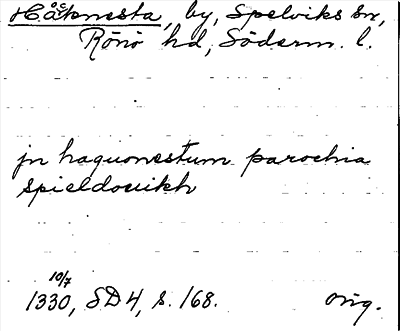 Håknesta, by, Spelviks sn,
Rönö hd, Söderm. l.
jn haquonestum parochia
spieldouikh
10/7
1330, SD 4, s. 168. Orig.